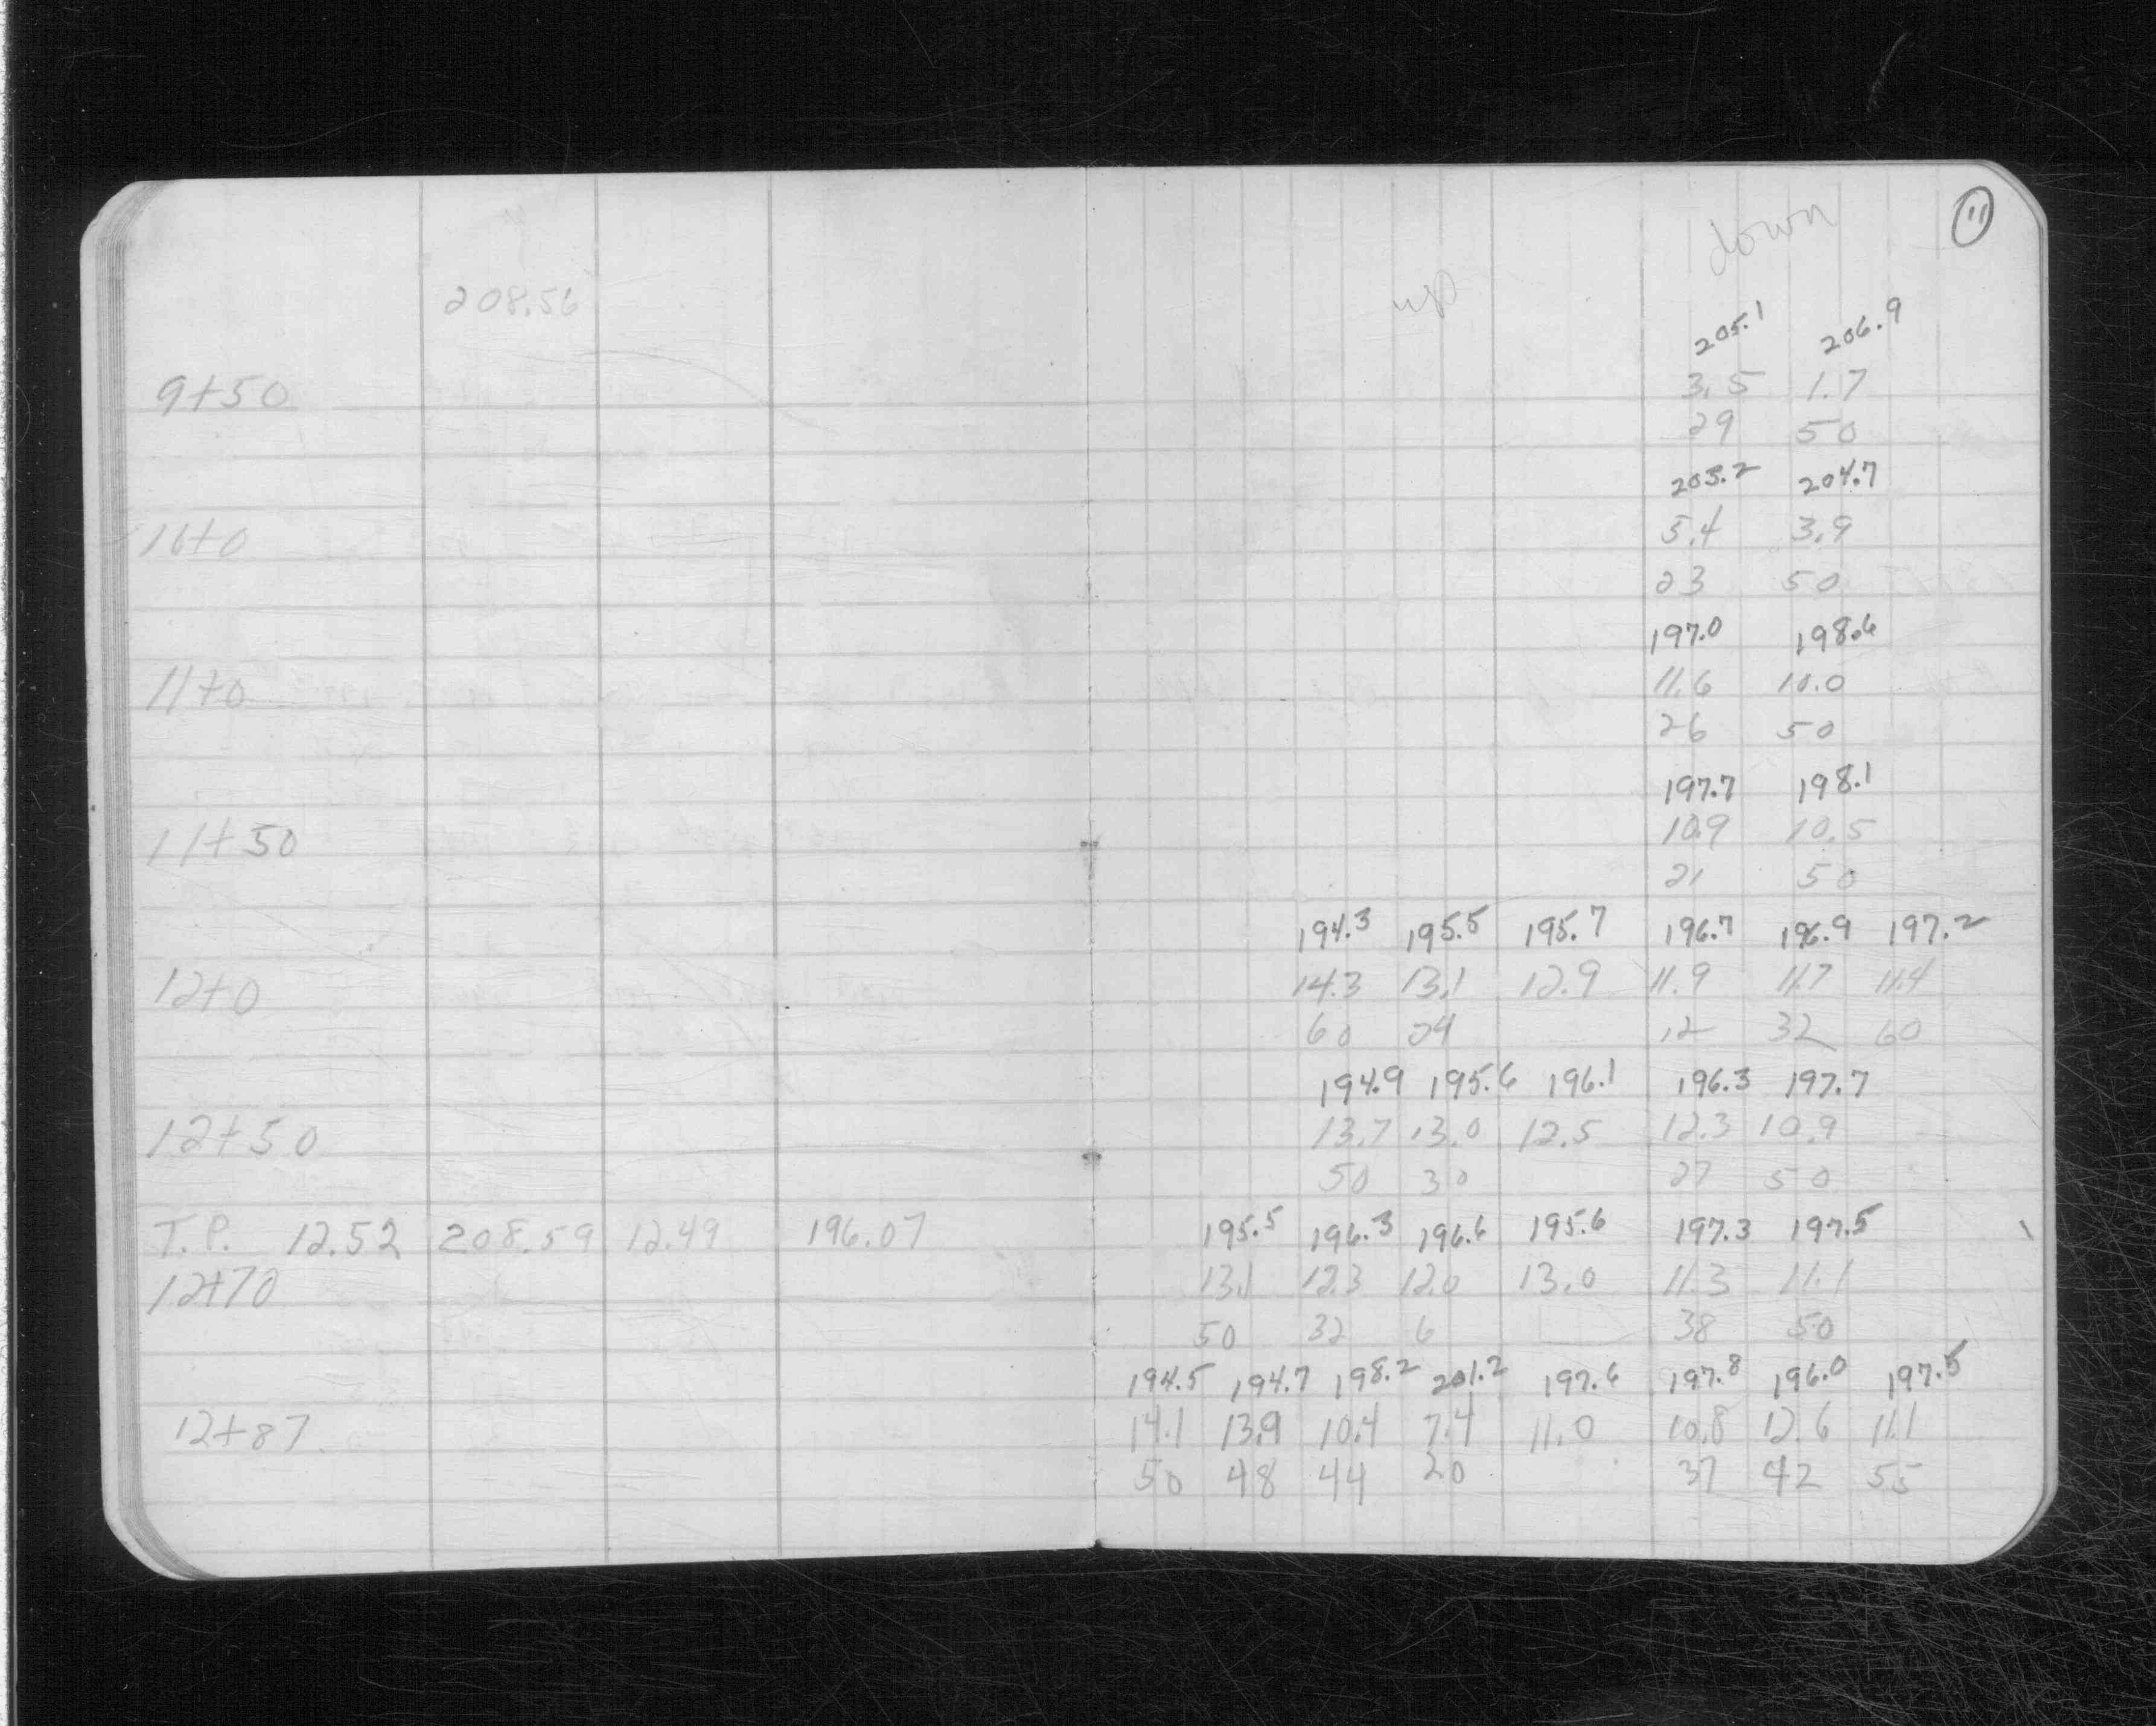 11
down
up
208.56
205.1 206.9
9+50 3.5 1.7
29 50
203.2 204.7
10+0 5.4 3.9
23 50
197.0 198.6
11+0 11.6 10.0
26 50
197.7 198.1
11+50 10.9 10.5
21 50
194.3 195.5 195.7 196.7 196.9 197.2
12+0 14.3 13.1 12.9 11.9 11.7 11.4
60 24 12 32 60
194.9 195.6 196.1 196.3 197.7
12+50 13.7 13.0 12.5 12.3 10.9
50 30 27 50
T.P. 12.52 208.59 12.49 196.07 195.5 196.3 196.6 195.6 197.3 197.5
12+70 13.1 12.3 12.0 13.0 11.3 11.1
50 32 6 38 50
194.5 194.7 198.2 201.2 197.6 197.8 196.0 197.5
12+87 14.1 13.9 10.4 7.4 11.0 10.8 12.6 11.1
50 48 44 20 37 42 55